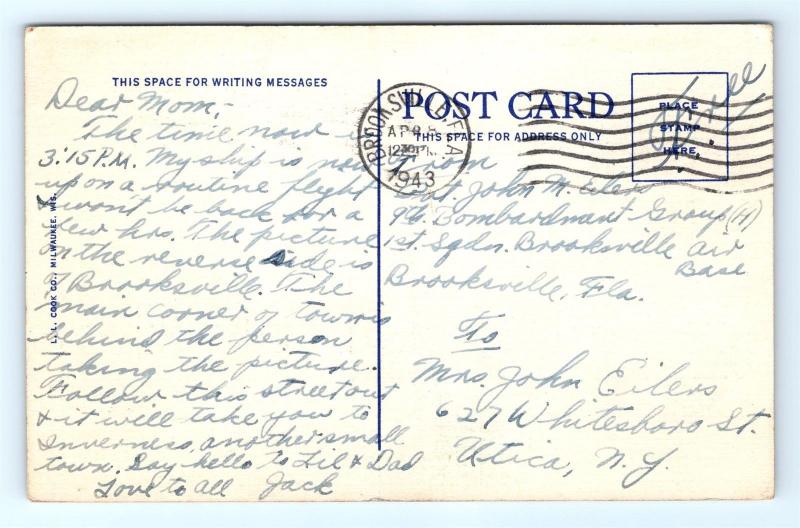 THIS SPACE FOR WRITING MESSAGES
Dear Mom,-
The time now is
3:15 P.M. My ship is now
upon a routine flight
& won't be back for a
few hrs. The picture
on the reverse side is
of Brooksville. The
main corner of town is
behind the person
taking the picture.
Follow this street out
& it will take you to
Inverness, another small
town. Say hello to Lil & Dad
Love to all Jack
L. L. COOK CO., MILWAUKEE, WIS.
POST CARD
THIS SPACE FOR ADDRESS ONLY
BROOKSVILLE, FLA.
APR 8
12 30 PM
1943
PLACE
STAMP
HERE.
Free
From
John M. Eilers
Bombardmant Group (H)
1st. Sqdn. Brooksville Air
Base
Brooksville, Fla.
To
Mrs. John Eilers
627 Whitesboro St.
Utica, N.Y.